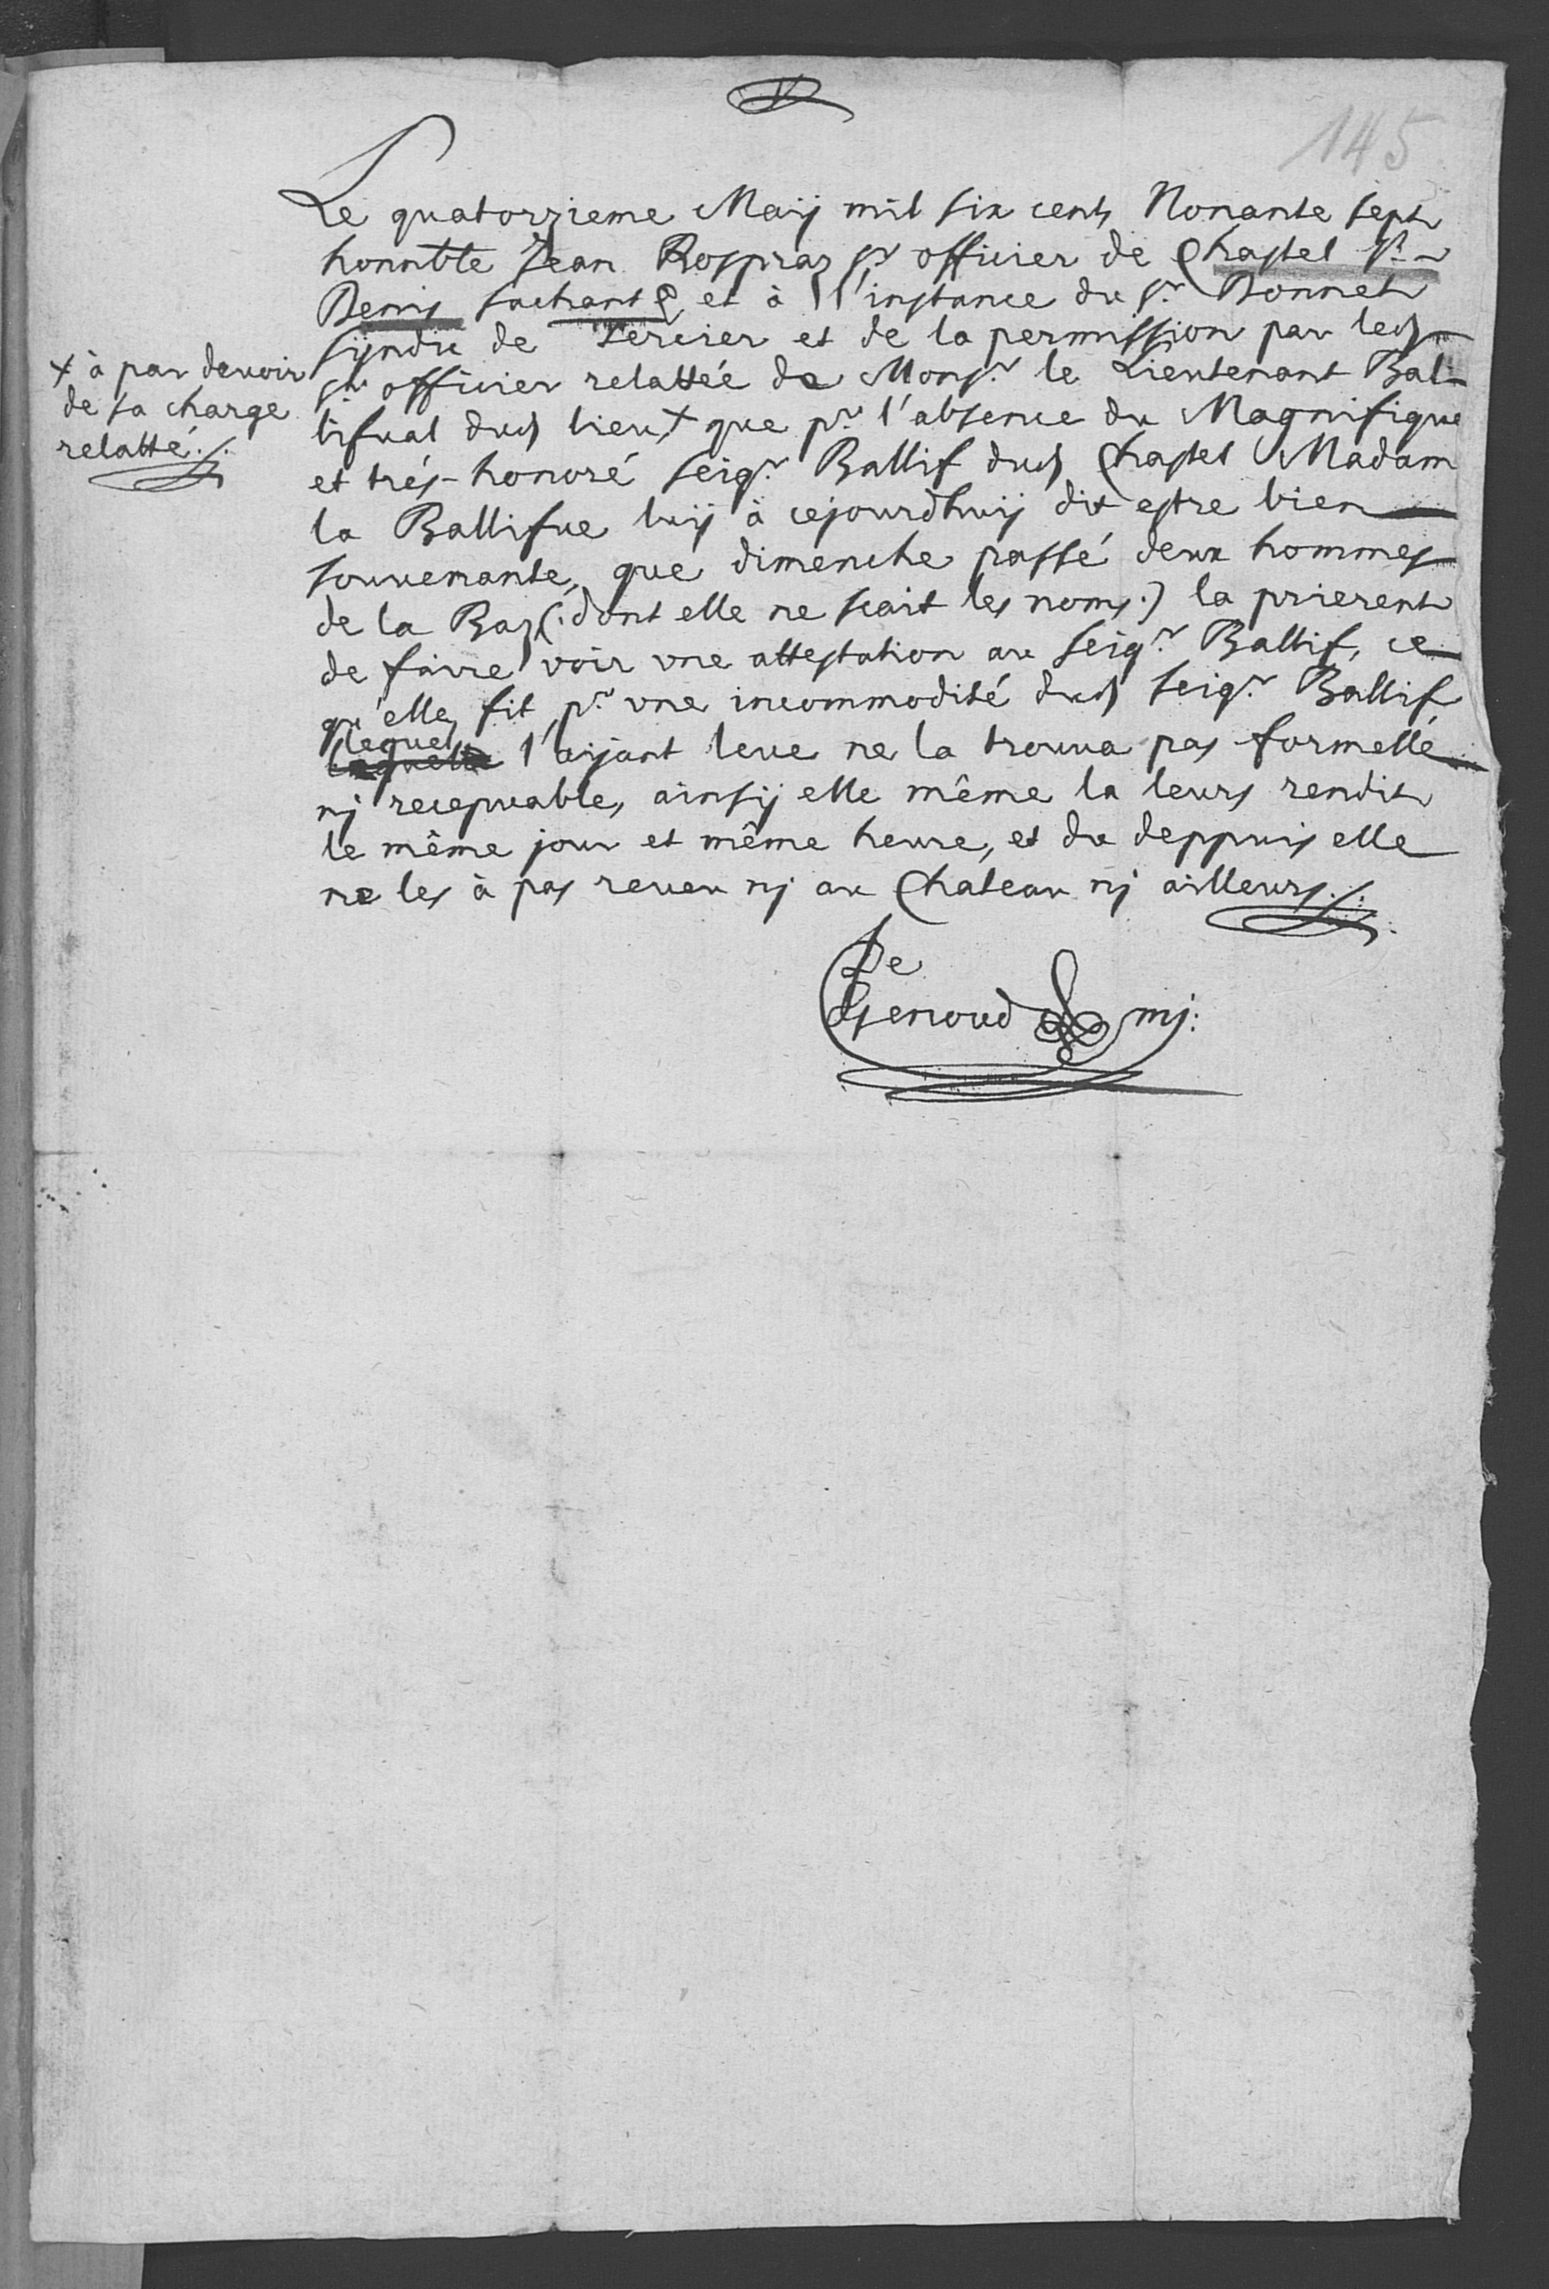 145
Le quatorzieme Maÿ mil six cents Nonante sept
honnble Jean Rospraz sr officier de Chastel St
Denis sachant & et à l'instance du sr Bonnet
sÿndic de Vercier et de la permission par leds
sr officier relattée de Monsr le Lieutenant Bal-
lifual duds lieu + que pr l'absence du Magnifique
et trés-honoré seigr Ballif duds Chastel Madam
la Ballifue luÿ à cejourdhuÿ dit estre bien
souuenante, que dimenche passé deux hommes
de la Baz (: dont elle ne scait les noms :) la prierent
de faire voir vne attestation au seigr Ballif, ce
qu'elle fit pr vne incommodité duds seigr Ballif
lequel l'aÿant leue ne la trouua pas formelle
nj recepuable, ainsÿ elle même la leurs rendit
le même jour et même heure, et du deppuis elle
ne les à pas reueu nj au Chateau nj ailleurs ./.
+ à par deuoir
de sa charge
relatté ./.
De
Genoud mj: